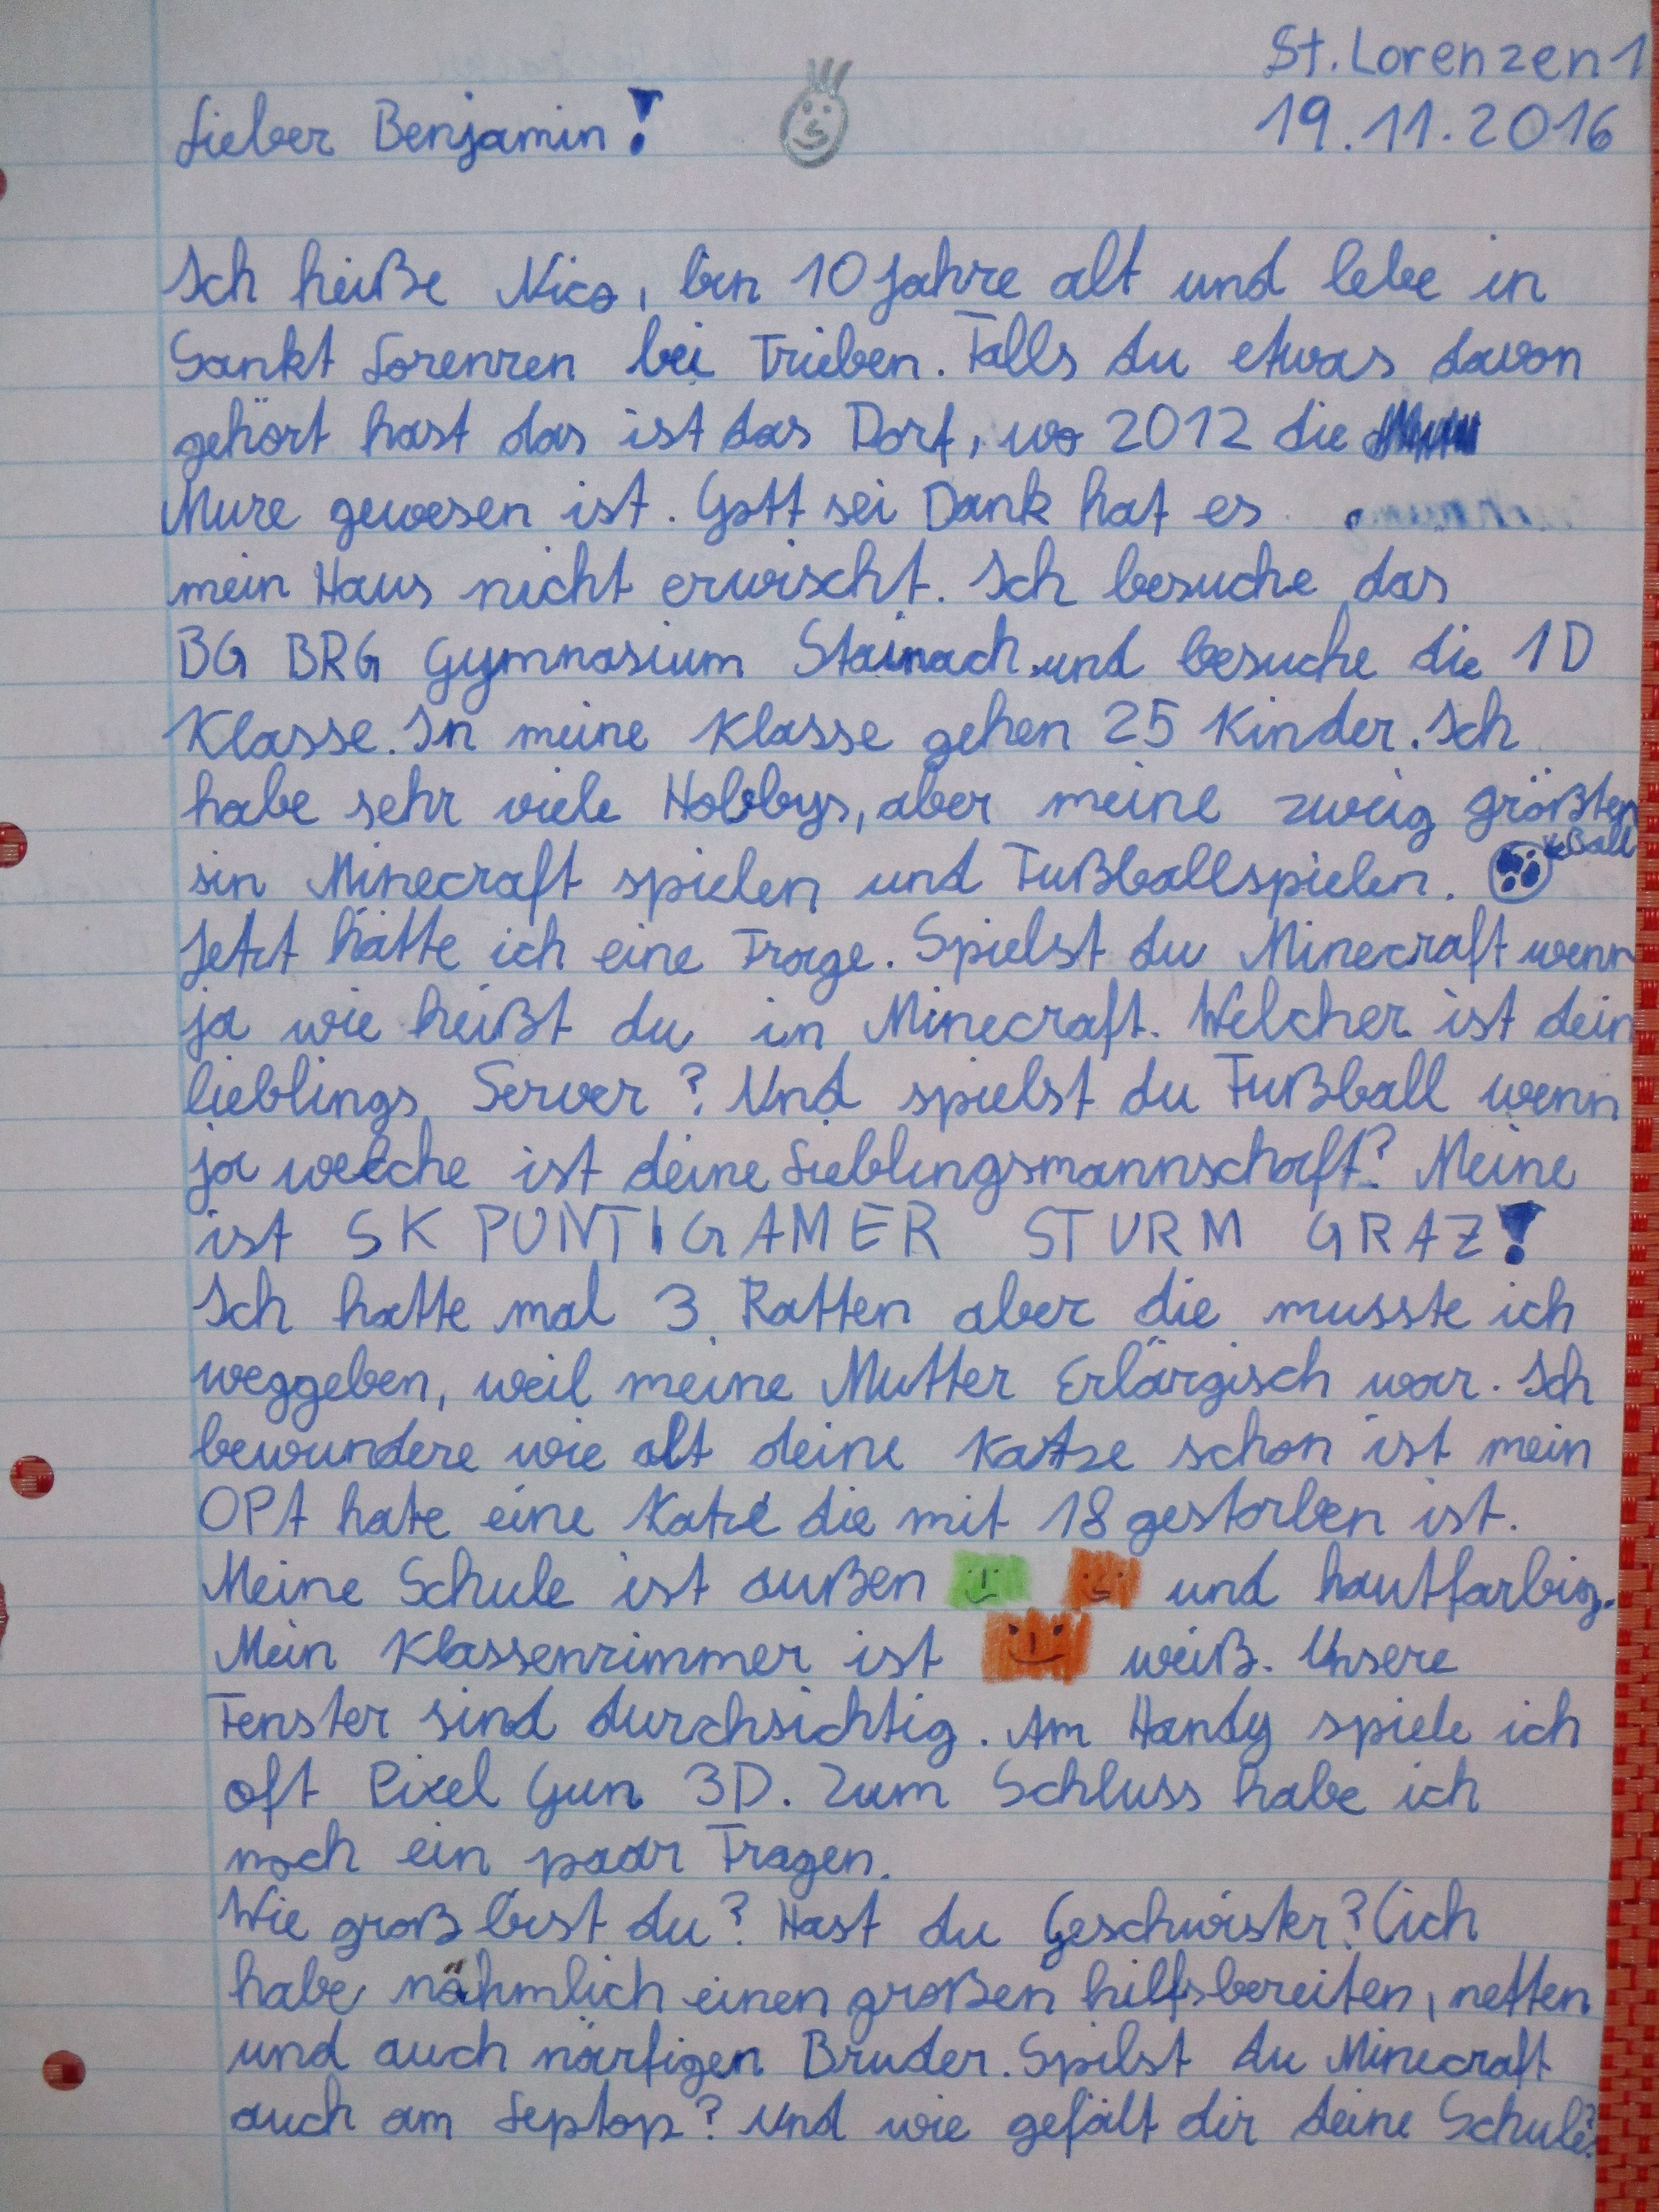 St. Lorenzen 1
19.11.2016
Lieber Benjamin!
Ich heiße Nico, bin 10 Jahre alt und lebe in
Sankt Lorenzen bei Trieben. Falls du etwas davon
gehört hast das ist das Dorf, wo 2012 die
Mure gewesen ist. Gott sei Dank hat es
mein Haus nicht erwischt. Ich besuche das
BG BRG Gymnasium Stainach und besuche die 1D
Klasse. In meine Klasse gehen 25 Kinder. Ich
habe sehr viele Hobbys, aber meine zweig größten
sin Minecraft spielen und Fußballspielen.
Ball
Jetzt hätte ich eine Frage. Spielst du Minecraft wenn
ja wie heißt du in Minecraft. Welcher ist dein
lieblings Server? Und spielst du Fußball wenn
ja welche ist deine Lieblingsmannschaft? Meine
ist SK PUNTIGAMER STURM GRAZ!
Ich hatte mal 3 Ratten aber die musste ich
weggeben, weil meine Mutter Erlärgisch war. Ich
bewundere wie alt deine Katze schon ist mein
OPA hate eine Katze die mit 18 gestorben ist.
Meine Schule ist außen und hautfarbig.
Mein Klassenzimmer ist weiß. Unsere
Fenster sind durchsichtig. Am Handy spiele ich
oft Pixel Gun 3D. Zum Schluss habe ich
noch ein paar Fragen.
Wie groß bist du? Hast du Geschwister? (ich
habe nähmlich einen großen hilfsbereiten, netten
und auch närfigen Bruder. Spilst du Minecraft
auch am Leptop? Und wie gefält dir deine Schule?